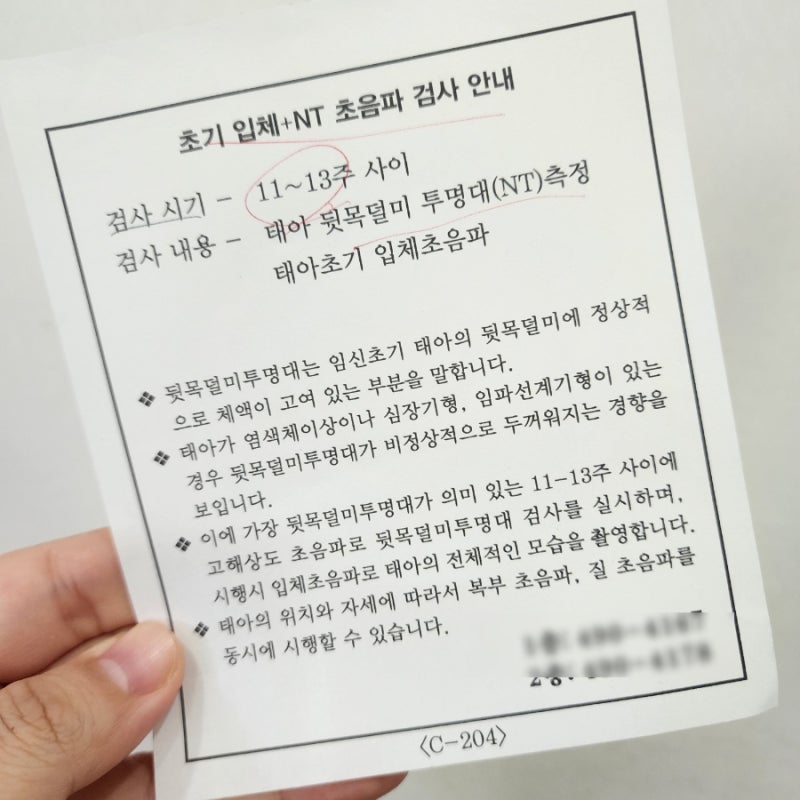 초기 입체+NT 초음파 검사 안내
검사 시기 - 11~13주 사이
검사 내용 - 태아 뒷목덜미 투명대(NT)측정
태아초기 입체초음파
❖ 뒷목덜미투명대는 임신초기 태아의 뒷목덜미에 정상적
으로 체액이 고여 있는 부분을 말합니다.
❖ 태아가 염색체이상이나 심장기형, 임파선계기형이 있는
경우 뒷목덜미투명대가 비정상적으로 두꺼워지는 경향을
보입니다.
❖ 이에 가장 뒷목덜미투명대가 의미 있는 11-13주 사이에
고해상도 초음파로 뒷목덜미투명대 검사를 실시하며,
시행시 입체초음파로 태아의 전체적인 모습을 촬영합니다.
❖ 태아의 위치와 자세에 따라서 복부 초음파, 질 초음파를
동시에 시행할 수 있습니다.
〈C-204〉